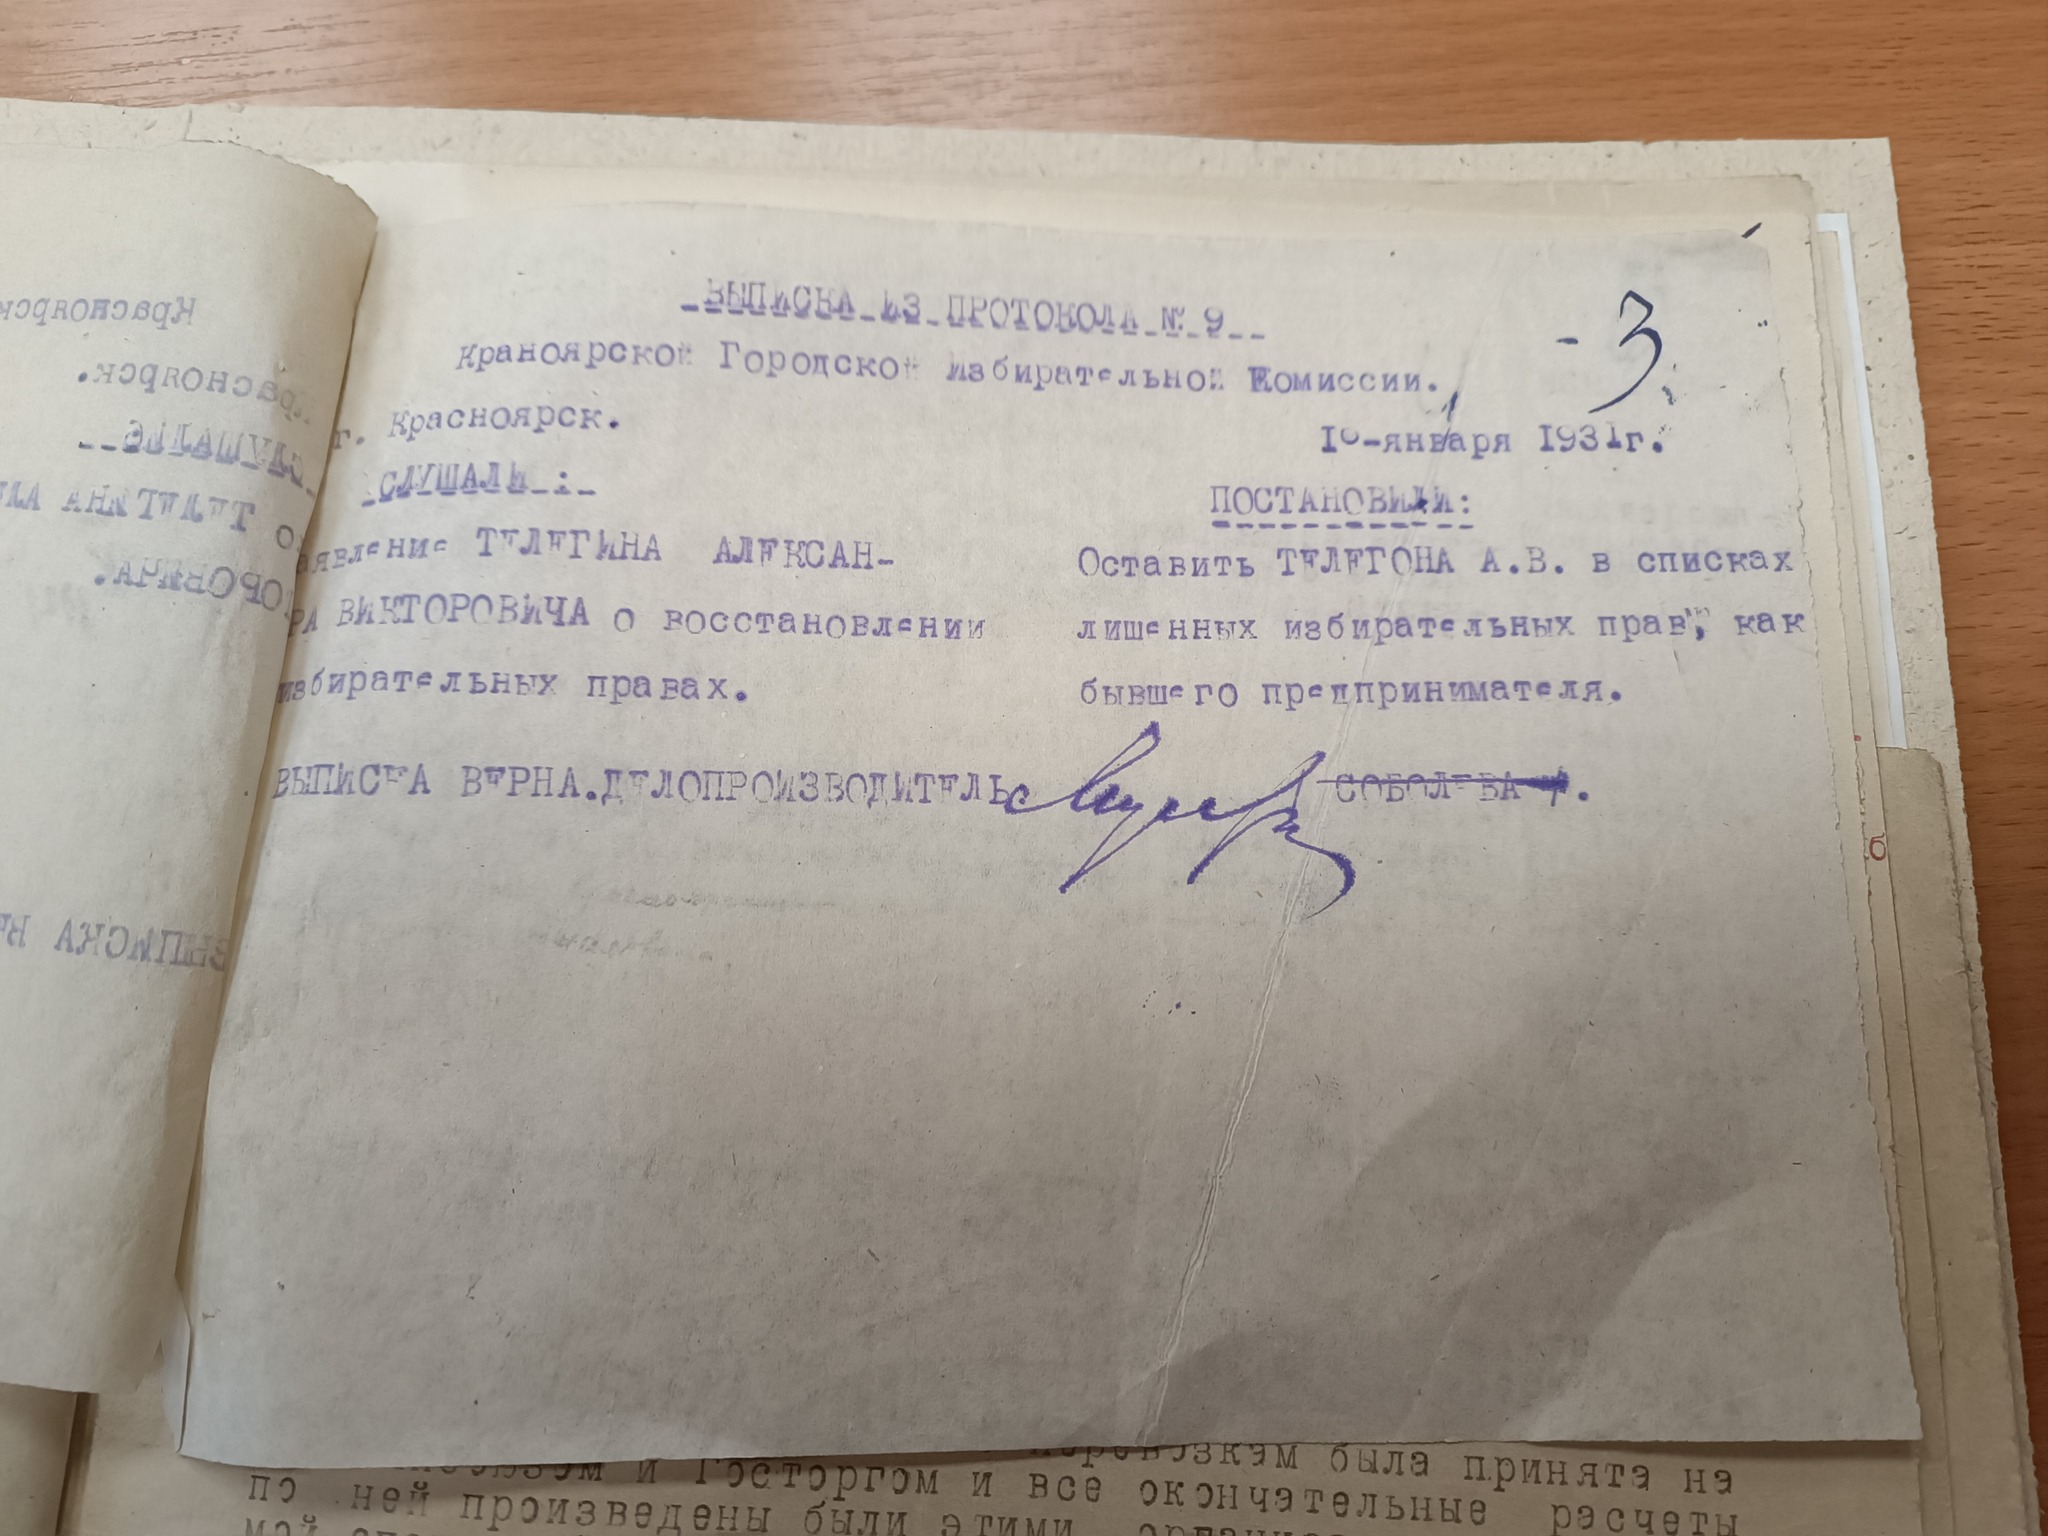 ВЫПИСКА ИЗ ПРОТОКОЛА № 9
Краноярской Городской избирательной Комиссии.
- 3
г. Красноярск.
1०-января 1931г.
СЛУШАЛИ :
ПОСТАНОВИЛИ:
аявление ТЕЛЕГИНА АЛЕКСАН-
РА ВИКТОРОВИЧА о восстановлении
избирательных правах.
Оставить ТЕЛЕГОНА А.В. в списках
лишенных избирательных прав", как
бывшего предпринимателя.
ВЫПИСКА ВЕРНА.ДЕЛОПРОИЗВОДИТЕЛЬ
СОБОЛЕВА
Красноярск
Красноярск.
СЛУШАЛИ:
ВЫПИСКА ВЕ
б
и Госторгом и все окончательные расчеты
перевозкам была принята на
по ней произведены были этими